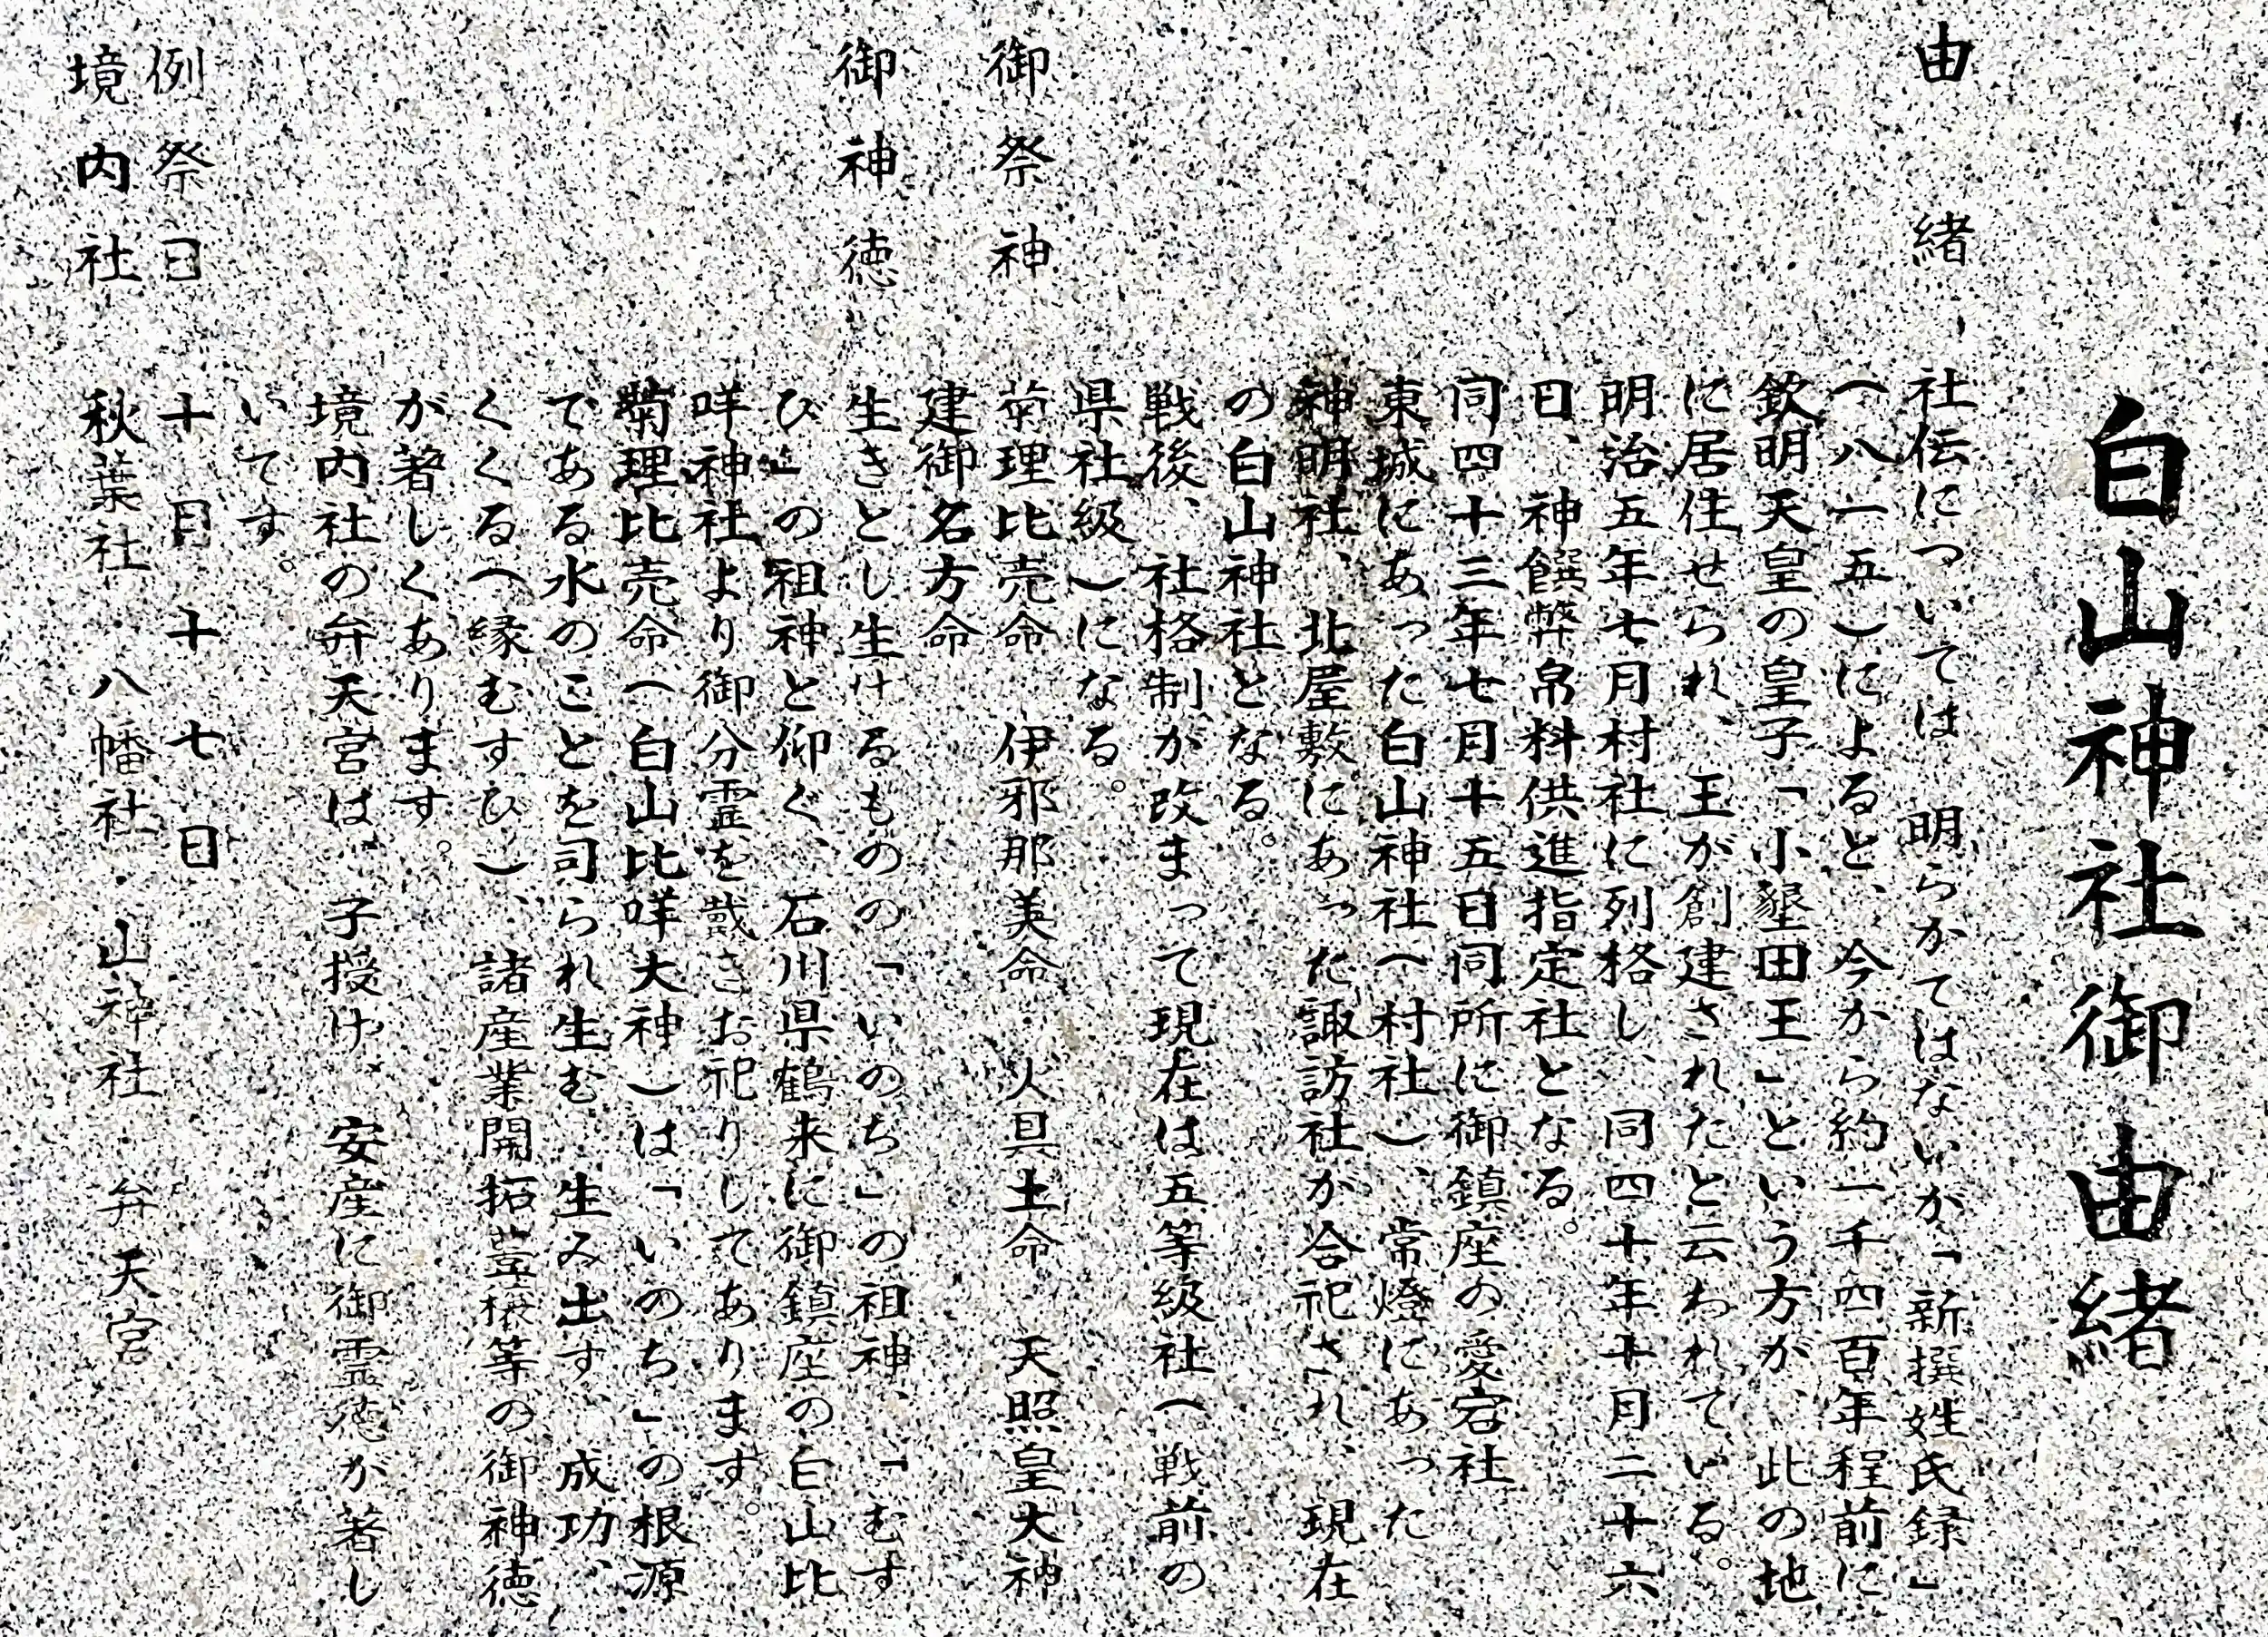 白山神社御由緒
由緒 社伝については、明らかてはないが「新撰姓氏録」
(八一五)によると、今から約一千四百年程前に
欽明天皇の皇子「小墾田王」という方が、此の地
に居住せられ、王が創建されたと云われている。
明治五年七月村社に列格し、同四十年十月二十六
日、神饌幣帛料供進指定社となる。
同四十三年七月十五日同所に御鎮座の愛宕社
東城にあった白山神社(村社)、常燈にあった
神明社、北屋敷にあった諏訪社が合祀され、現在
の白山神社となる。
戦後、社格制が改まって現在は五等級社(戦前の
県社級)になる。
御祭神 菊理比売命 伊邪那美命 火具土命 天照皇大神
建御名方命
御神徳 生きとし生けるものの「いのち」の祖神、「むす
び」の祖神と仰ぐ、石川県鶴来に御鎮座の白山比
咩神社より御分霊を戴きお祀りしてあります。
菊理比売命(白山比咩大神)は「いのち」の根源
である水のことを司られ生む、生み出す、成功、
くくる(縁むすび)、諸産業開拓等の御神徳
が著しくあります。
境内社の弁天宮は、子授け、安産に御霊徳が著し
いです。
例祭日 十月十七日
境内社 秋葉社・八幡社・山神社・弁天宮